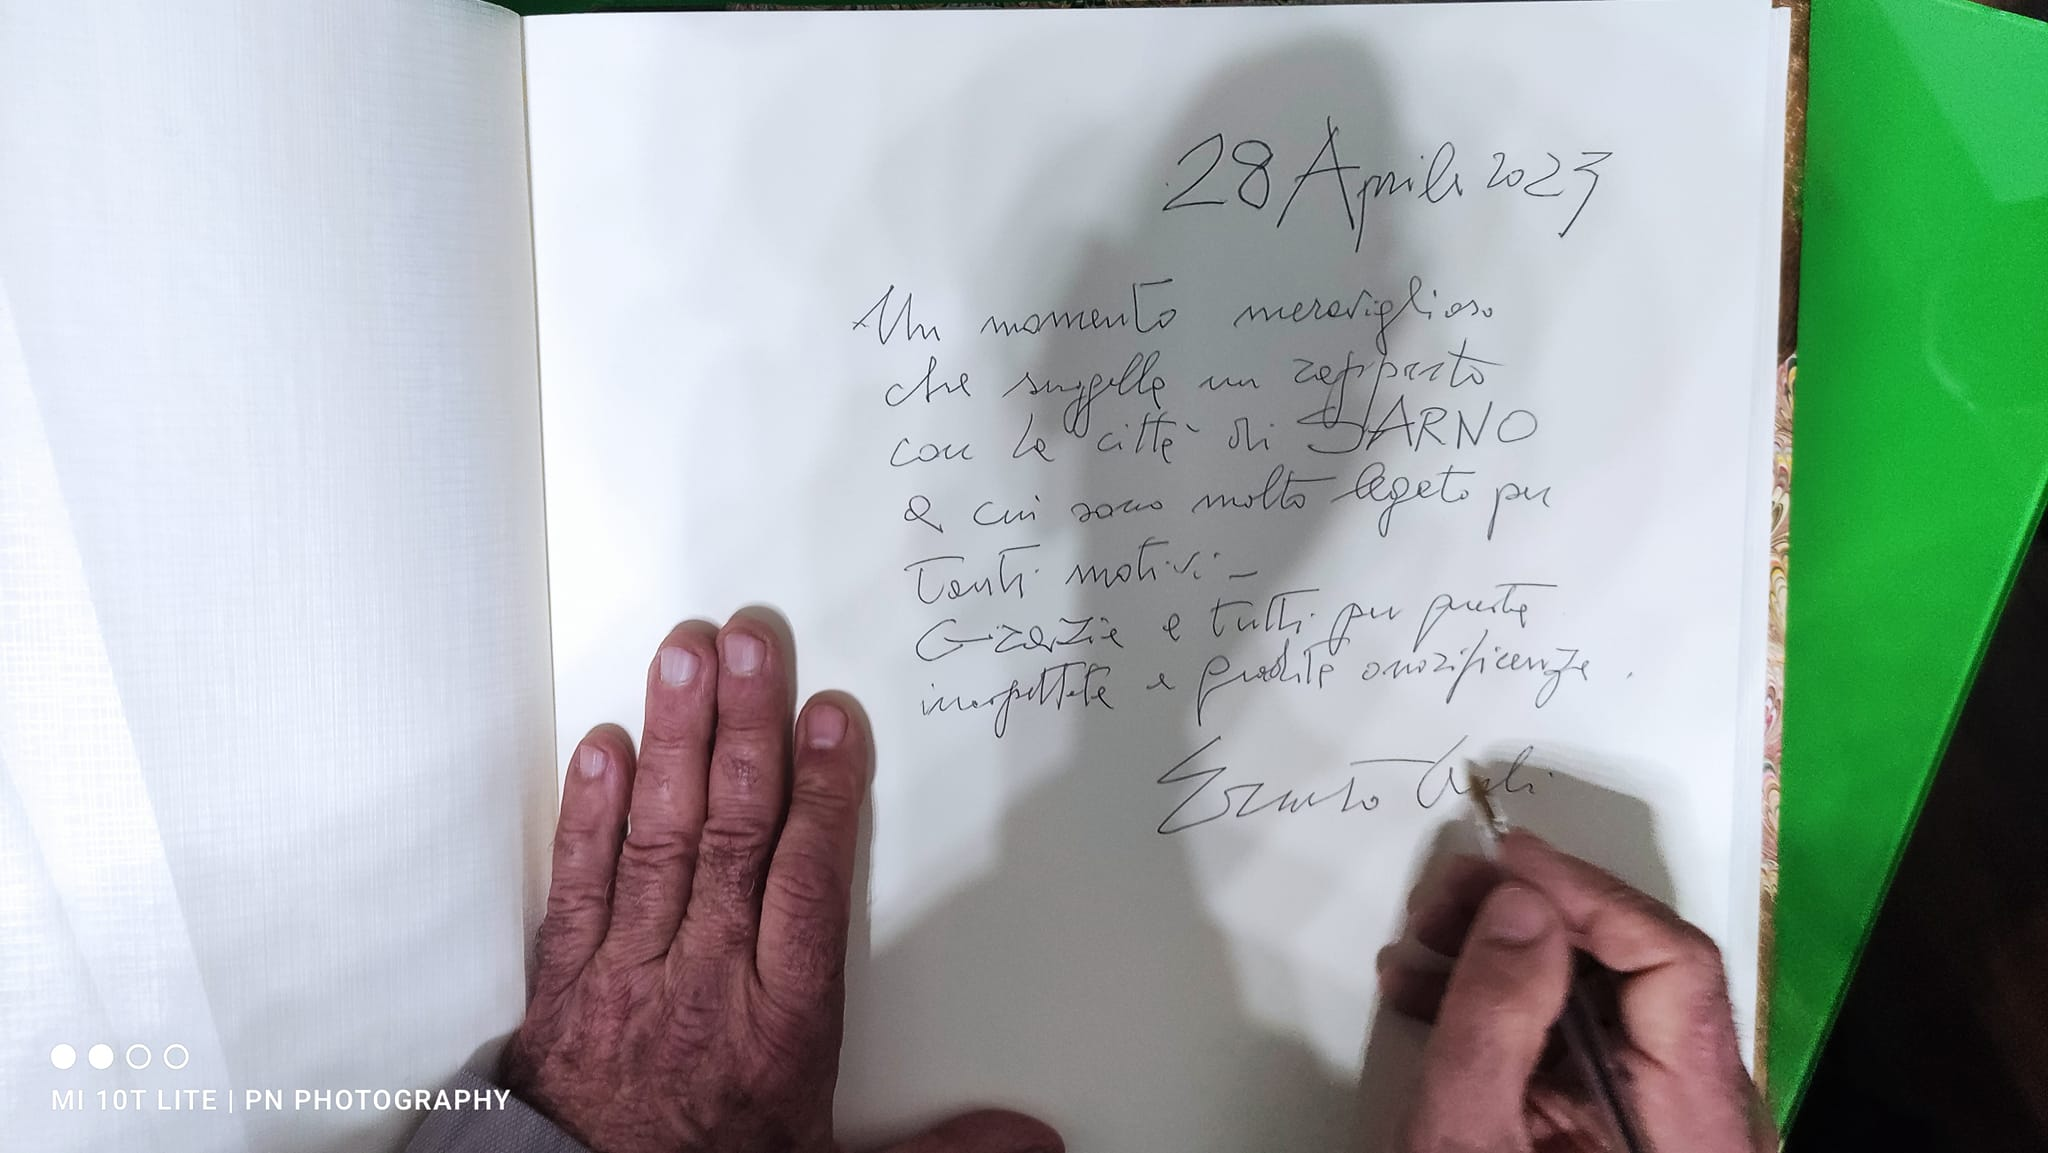 28 Aprile 2023
Un momento meraviglioso
che suggella un rapporto
con la città di SARNO
a cui sono molto legato per
tanti motivi -
Grazie a tutti per questa
inaspettata e gradita onorificenza.
Ernesto
MI 10T LITE | PN PHOTOGRAPHY